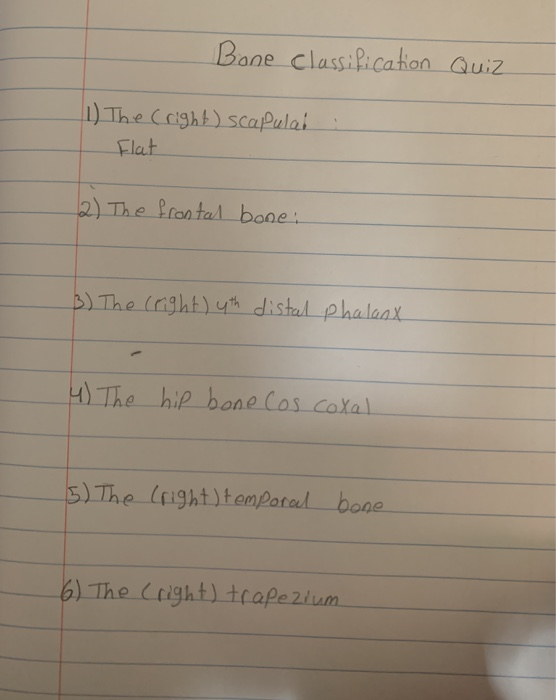 Bone classification Quiz
1) The (right) scapula:
Flat
2) The frontal bone:
3) The (right) 4th distal phalanx
4) The hip bone (os coxal
5) The (right) temporal bone
6) The (right) trapezium